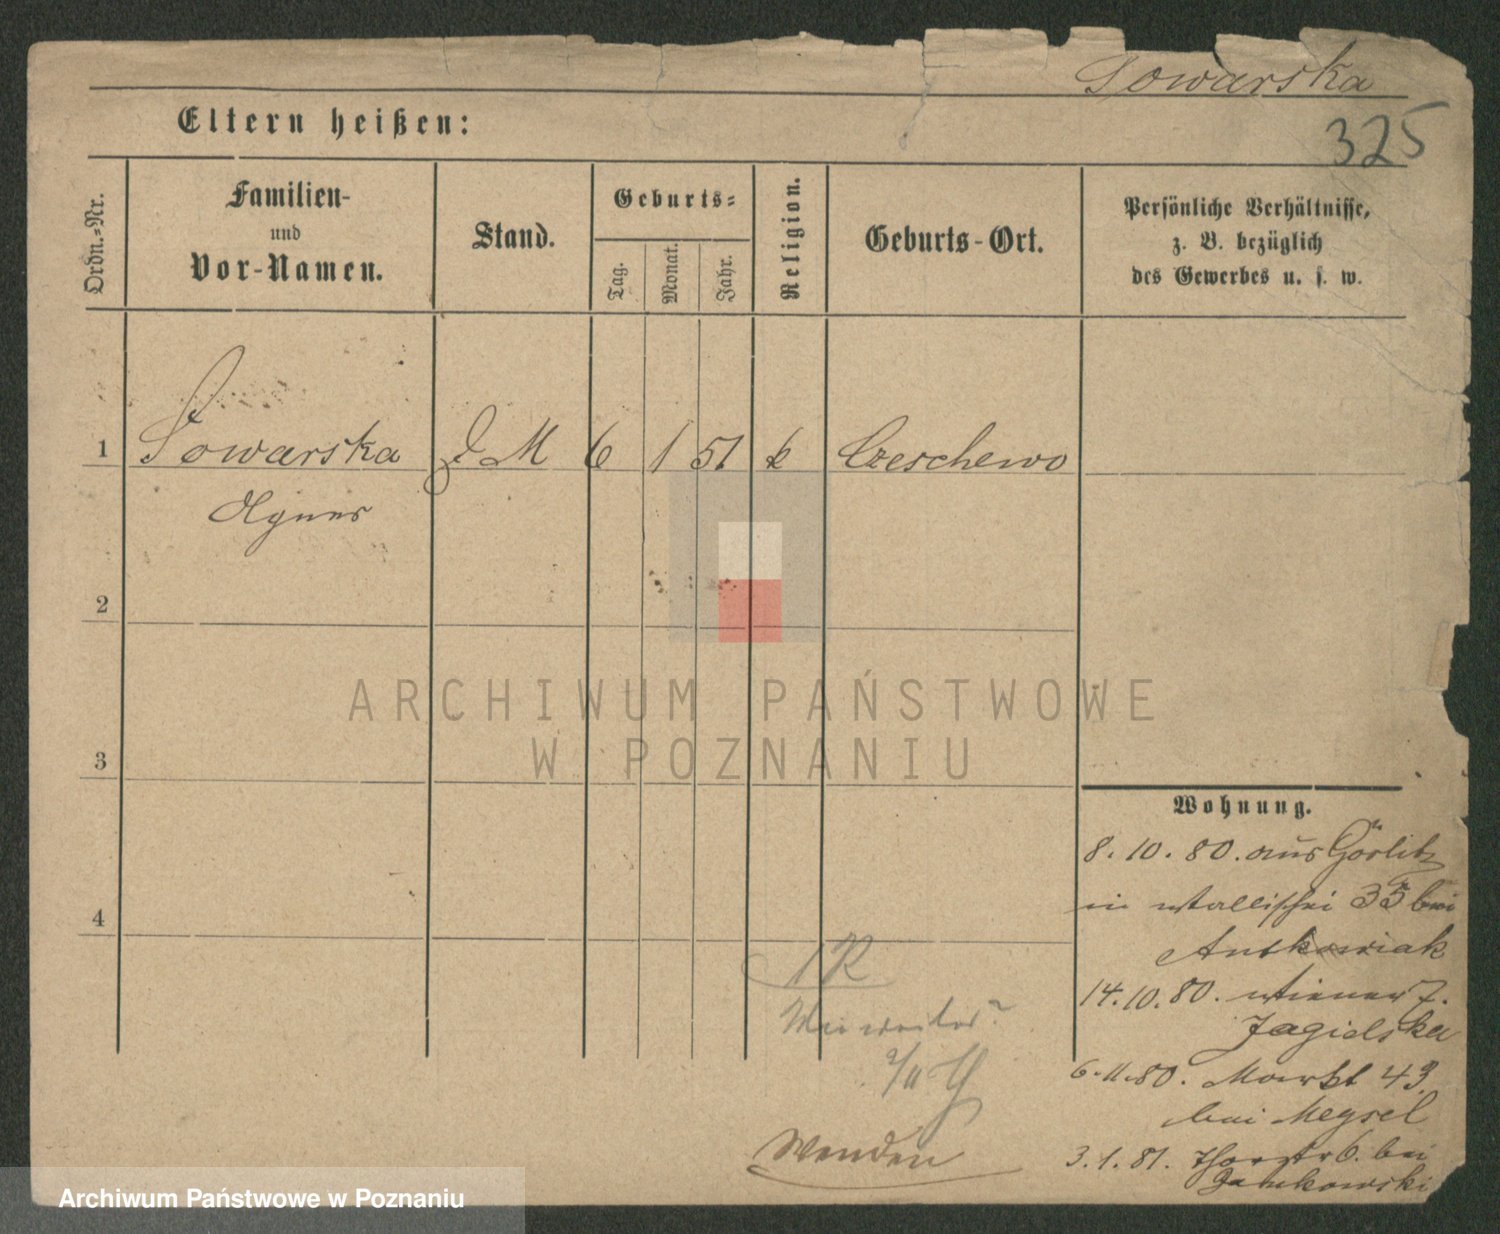 Sowarska
325
Eltern heißen:
Ordn.-Nr.
Familien-
und
Vor-Namen.
Stand.
Geburts-
Tag.
Monat.
Jahr.
Religion.
Geburts-Ort.
Persönliche Verhältnisse,
z. B. bezüglich
des Gewerbes u. s. w.
1 Sowarska d M 6 1 51 k Czeschewo
Agnes
2
3
4
Wohnung.
8. 10. 80. aus Görlitz
in Wallischei 35 bei
Antkowiak
14. 10. 80. Wiener 7.
Jagielska
6. 11. 80. Markt 43
bei Meysel
3. 1. 81. 6. bei
Wenden
ARCHIWUM PAŃSTWOWE
W POZNANIU
Archiwum Państwowe w Poznaniu